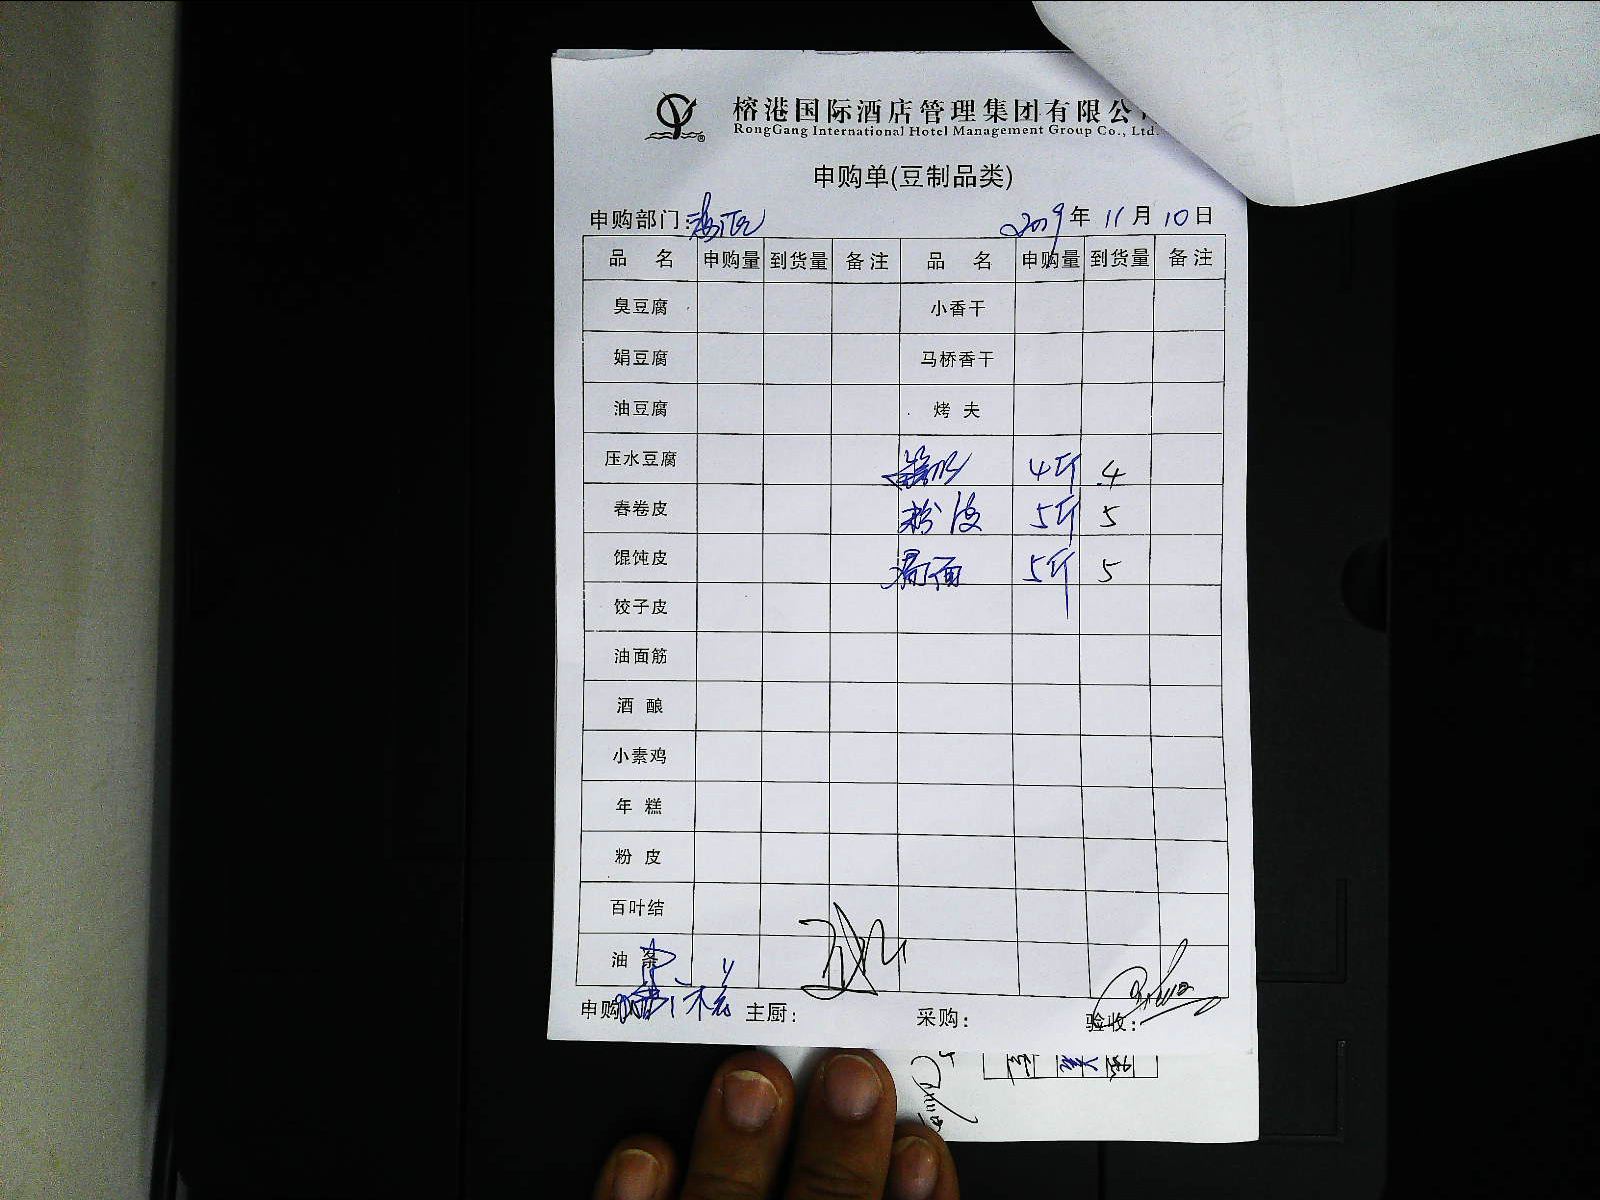 榕港国际酒店管理集团有限公
RongGang International Hotel Management Group Co., Ltd.
申购单(豆制品类)
申购部门: 2019年 11月 10日
品 名 申购量 到货量 备注 品 名 申购量 到货量 备注
臭豆腐 小香干
娟豆腐 马桥香干
油豆腐 烤 夫
压水豆腐 4斤 4
春卷皮 5斤 5
馄饨皮 5斤 5
饺子皮
油面筋
酒 酿
小素鸡
年 糕
粉 皮
百叶结
油 条
申购 主厨: 采购: 验收: